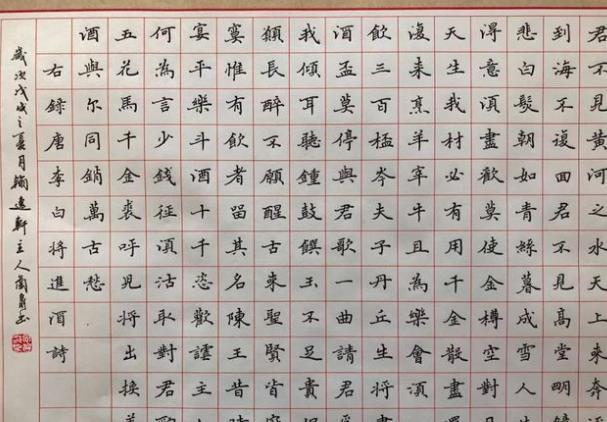 君不見黃河之水天上來奔
到海不復回君不見高堂明
悲白髮朝如青絲暮成雪人
得意須盡歡莫使金樽空對
天生我材必有用千金散盡
復來烹羊宰牛且為樂會須
飲三百桮岑夫子丹丘生將
酒盃莫停與君歌一曲請君
我傾耳聽鐘鼓饌玉不足貴
願長醉不願醒古來聖賢皆
寞惟有飲者留其名陳王昔
宴平樂斗酒十千恣歡謔主
何為言少錢徑須沽取對君
五花馬千金裘呼兒將出換
酒與尔同銷萬古愁
右錄唐李白將進酒詩
歲次戊戌之夏月翰逸軒主人